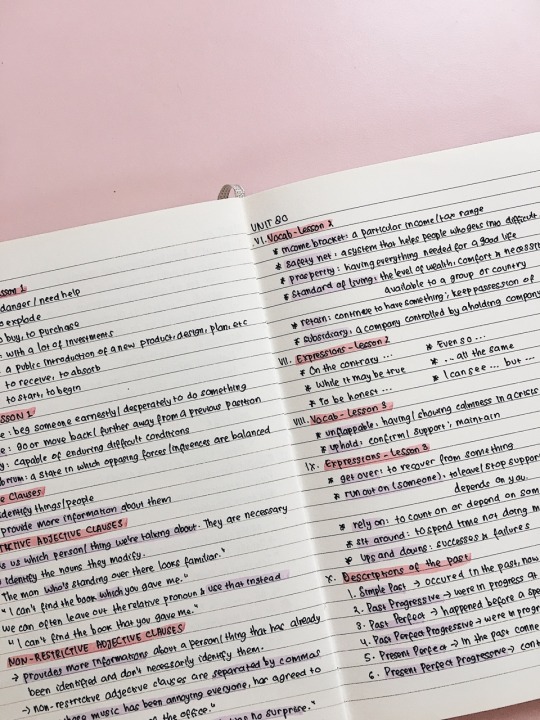 sson 1
danger / need help
o explode
o buy, to purchase
: with a lot of investments
. a public introduction of a new product, design, plan, etc
to receive, to absorb
to start, to begin
sson 1
e : beg someone earnestly / desperately to do something
e : go or move back / further away from a previous position
y : capable of enduring difficult conditions
brium : a state in which opposing forces / influences are balanced
e Clauses
identify things/people
provide more information about them
TRICTIVE ADJECTIVE CLAUSES
ls us which person/thing we're talking about. They are necessary
identify the nouns they modify.
The man who's standing over there looks familiar."
"I can't find the book which you gave me."
we can often leave out the relative pronoun & use that instead
"I can't find the book that you gave me."
NON-RESTRICTIVE ADJECTIVE CLAUSES
→ provides more informations about a person/thing that has already
been identified and don't necessarily identify them.
→ non-restrictive adjective clauses are separated by commas
music has been annoying everyone, has agreed to
the office."
no surprise."
UNIT 80
VI. Vocab - Lesson 2
* income bracket: a particular income/tax range
* safety net : a system that helps people who gets into difficult
* prosperity : having everything needed for a good life
* standard of living: the level of wealth, comfort &
available to a group or country
* retain: continue to have something; keep possession of
* subsidiary: a company controlled by a holding company
VII. Expressions - Lesson 2
* On the contrary ... * Even so ...
* While it may be true * ... all the same
* To be honest ... * I can see ... but ...
VIII. Vocab - Lesson 3
* unflappable: having/showing calmness in a crisis
* uphold: confirm/support; maintain
IX. Expressions - Lesson 3
* get over: to recover from something
* run out on (someone), to leave/stop support
depends on you.
* rely on: to count on or depend on som
* sit around: to spend time not doing m
* Ups and downs: successes & failures
X. Descriptions of the Past
1. Simple Past → occurred in the past, now
2. Past Progressive → were in progress at
3. Past Perfect → happened before a spe
4. Past Perfect Progressive → were in progr
5. Present Perfect → In the past conne
6. Present Perfect Progressive → cont